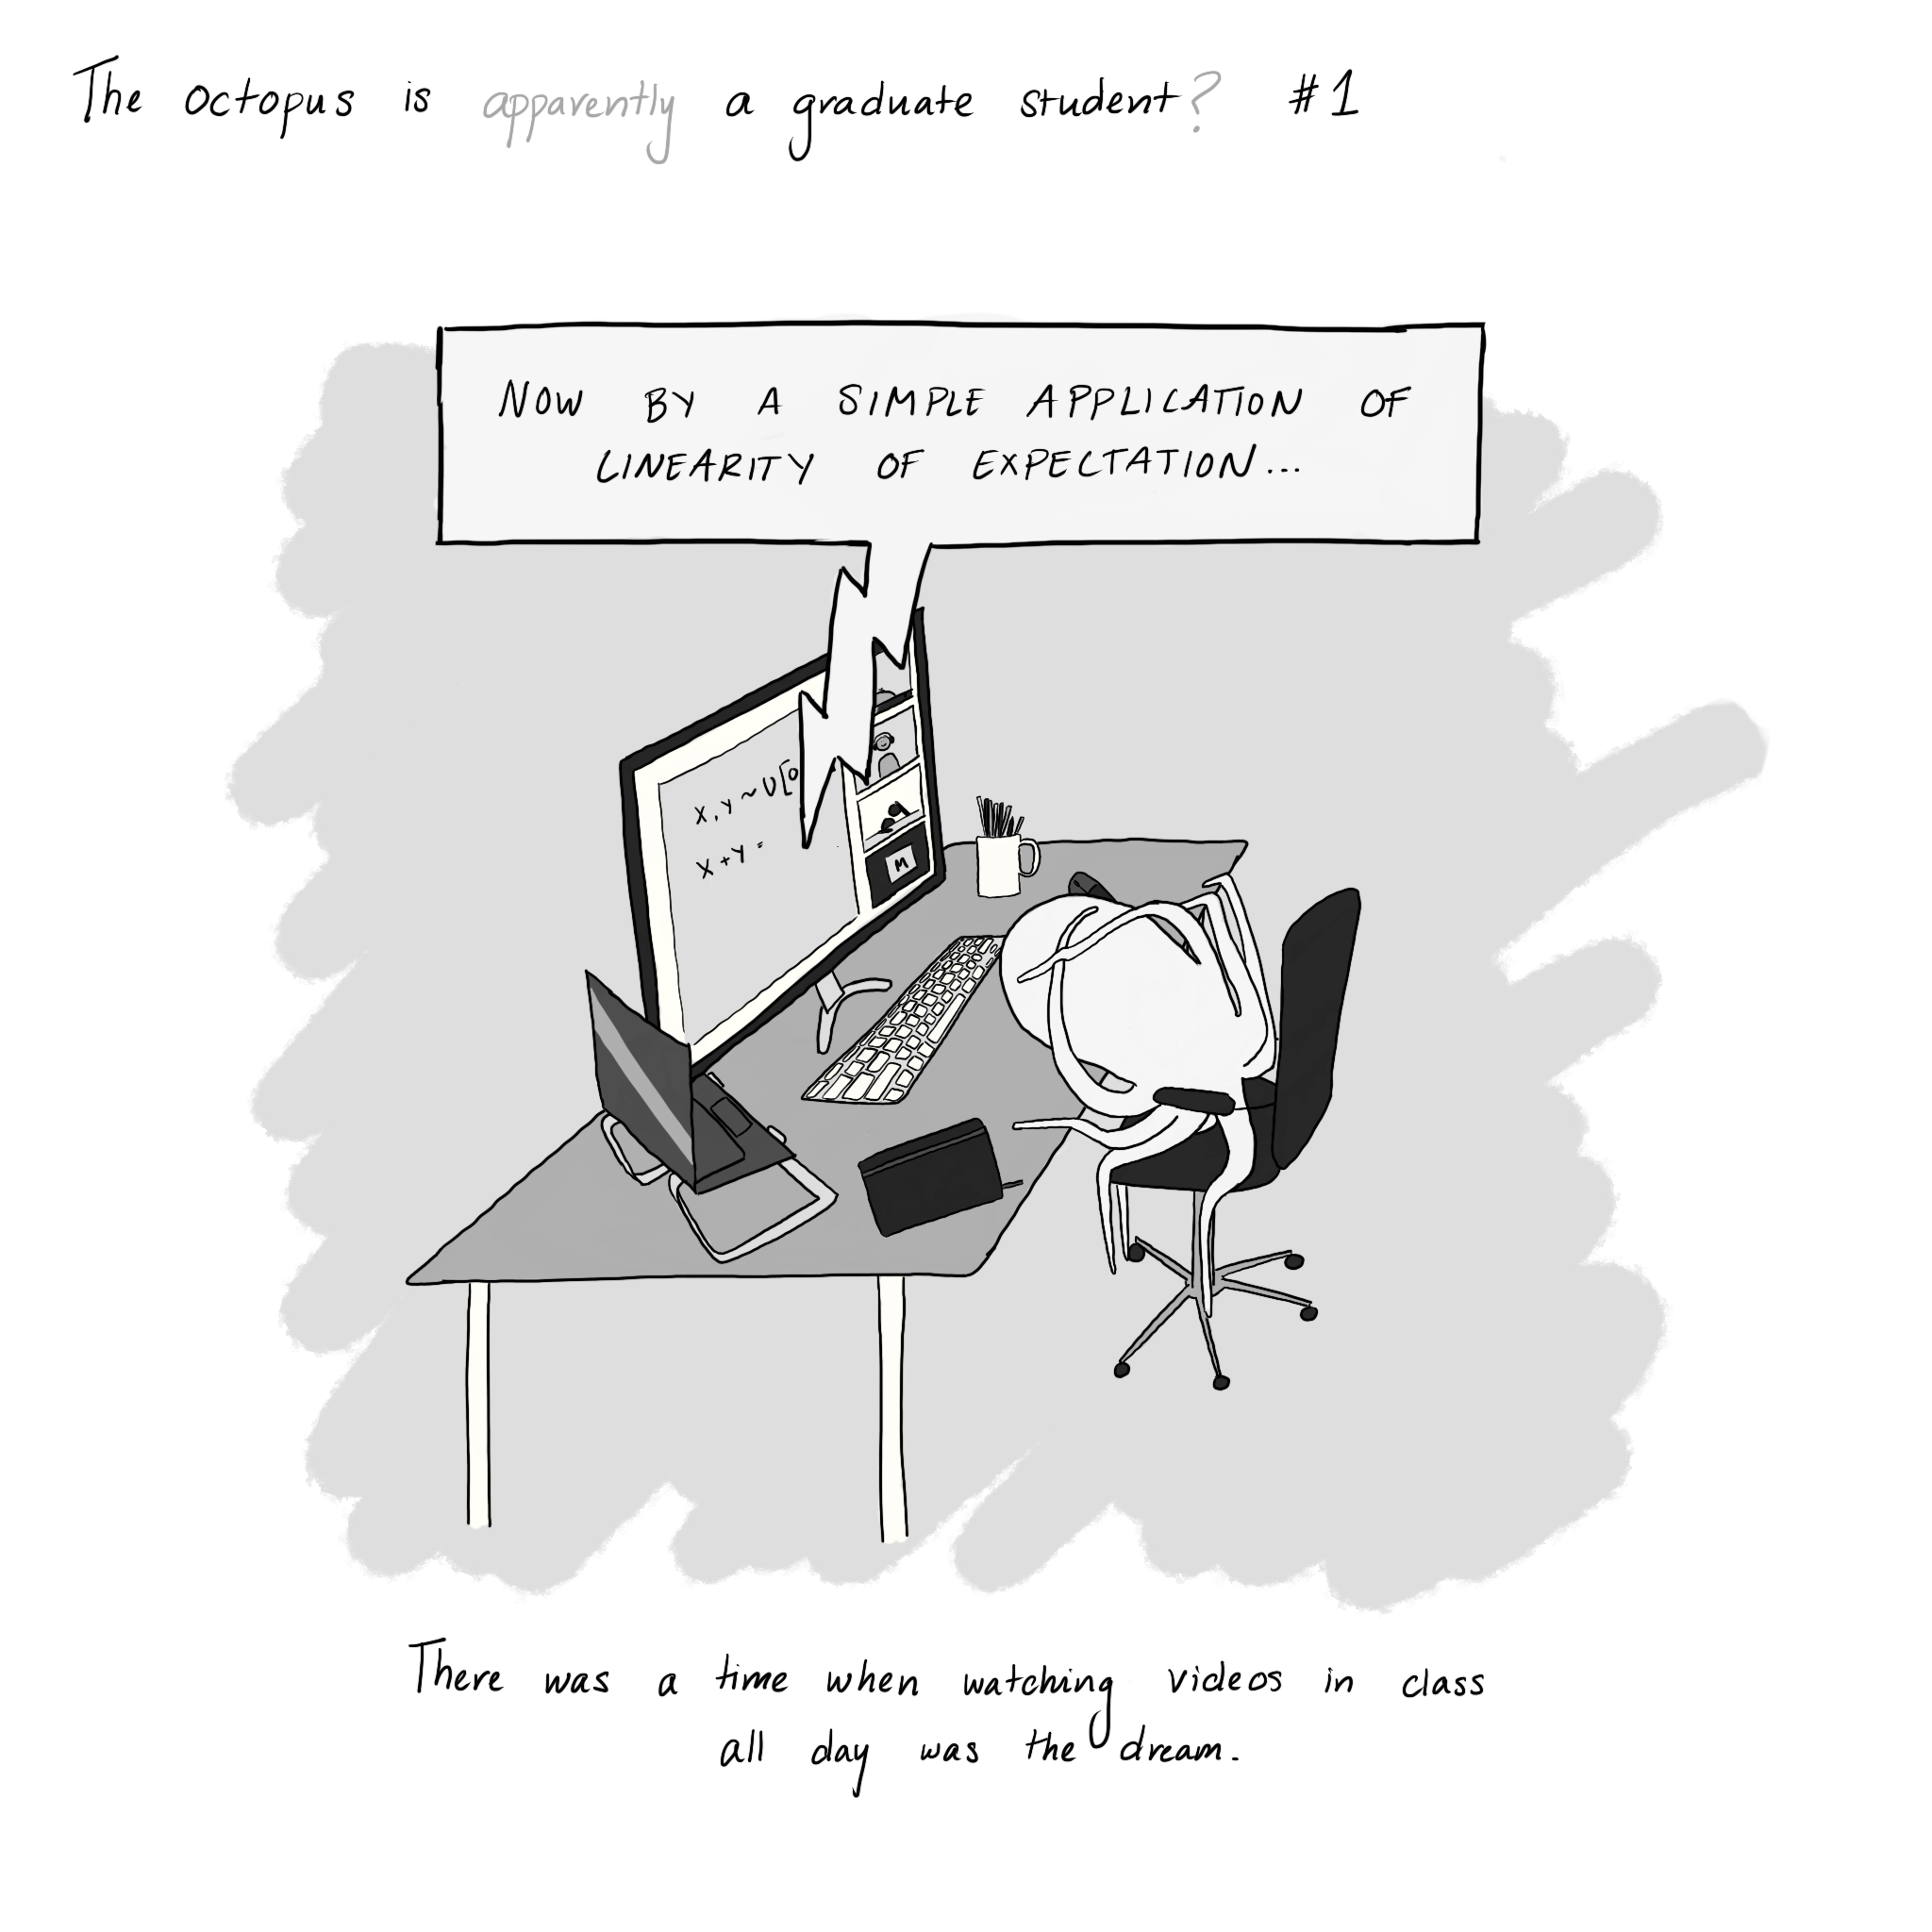 The octopus is apparently a graduate student? #1
NOW BY A SIMPLE APPLICATION OF
LINEARITY OF EXPECTATION...
X, Y ~ U[0
X + Y =
M
There was a time when watching videos in class
all day was the dream.